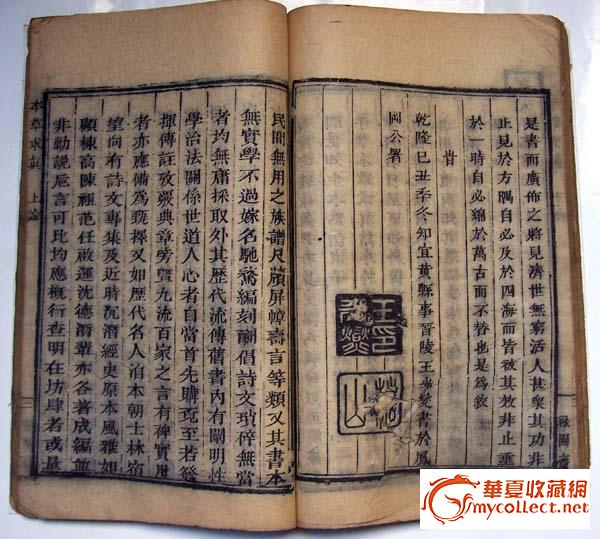 是書而廣佈之將見濟世無窮活人甚衆其功非
止見於方隅自必及於四海而皆被其效非止垂
於一時自必綿於萬古而不替也是為敘
旹
乾隆己丑季冬知宜黃縣事晉陵王光燮書於鳳
岡公署
王印光燮
民間無用之族譜尺牘屏幛壽言等類又其書本
無實學不過嫁名馳騖編刻酬倡詩文瑣碎無當
者均無庸採取外其歷代流傳舊書內有闡明性
學治法關係世道人心者自當首先購覓至若發
揮傳註攷覈典章旁暨九流百家之言有裨實用
者亦應備為甄擇又如歷代名人洎本朝士林宿
望向有詩文專集及近時沉潛經史原本風雅如
顧棟高陳祖范任啟運沈德潛輩亦各著成編並
非勦說巵言可比均應概行查明在坊肆者或量
本草求真 上諭
華夏收藏網
mycollect.net